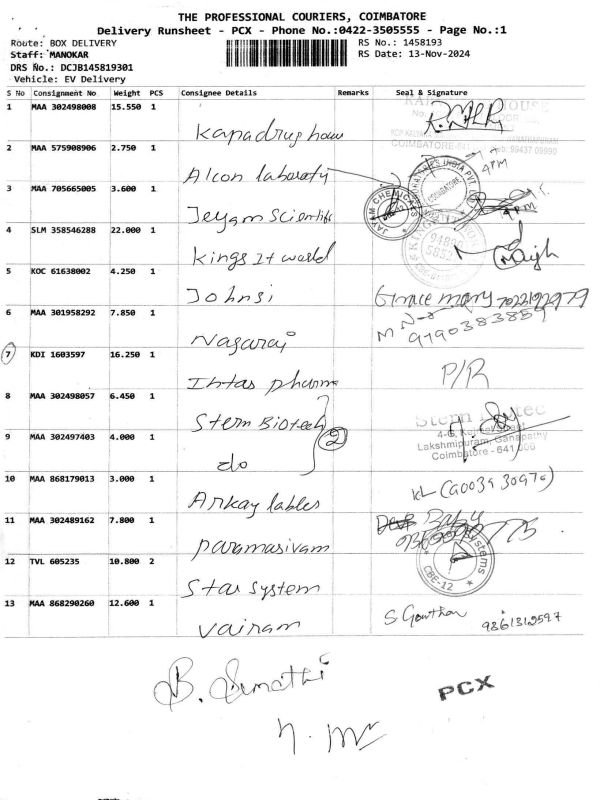 THE PROFESSIONAL COURIERS, COIMBATORE
Delivery Runsheet - PCX - Phone No.:0422-3505555 - Page No.:1
Route: BOX DELIVERY
RS No.: 1458193
Staff: MANOKAR
RS Date: 13-Nov-2024
DRS No.: DCJB145819301
Vehicle: EV Delivery
S No Consignment No Weight PCS Consignee Details Remarks Seal & Signature
1 MAA 302498008 15.550 1
Kapadrug house
COIMBATORE-641
2 MAA 575908906 2.750 1
Alcon laboraty
4 PM
3 MAA 705665005 3.600 1
JAYAM CHEMICALS
COIMBATORE
Jeyam Scientific
4 PM
4 SLM 358546288 22.000 1
Kings It world
5 KOC 61638002 4.250 1
Johnsi
Grace mary
6 MAA 301958292 7.850 1
Nagaraj
9790383857
7 KDI 1603597 16.250 1
Intas pharma
P/R
8 MAA 302498057 6.450 1
Stern Biotech
Stern Biotec
4-G,
Lakshmipuram, Ganapathy
Coimbatore - 641 006
2
9 MAA 302497403 4.000 1
do
10 MAA 868179013 3.000 1
Arkay lables
11 MAA 302489162 7.800 1
paramasivam
12 TVL 605235 10.800 2
Star system
Systems
CBE-12
13 MAA 868290260 12.600 1
Vairam
S Gowthan
9361312597
B. Sumathi
PCX